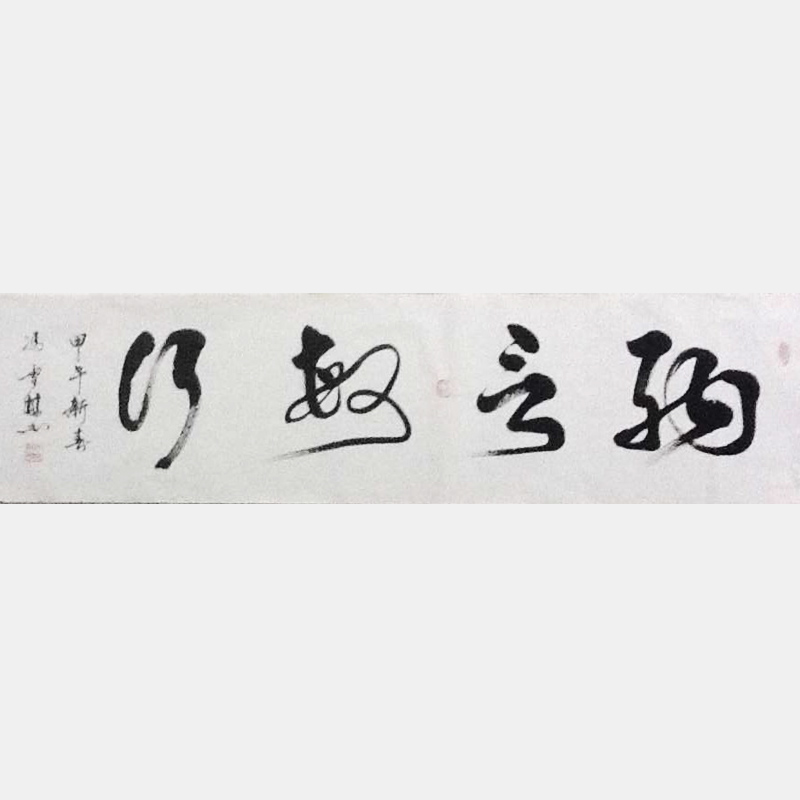 訥言敏行
甲午新春
冯雪书